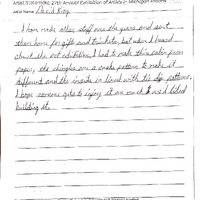 Artist Statements, 27th Annual Exhibition of Artists in Michigan Prisons
Artist Name: David Kay
I have made other stuff over the years and sent
them home for gifts and trinkets, but when I heard
about the art exhibition I had to make this cabin from
paper, the shingles are a snake pattern to make it
different and the inside is lined with tie dye pattern.
I hope someone gets to enjoy it as much as I liked
building it.